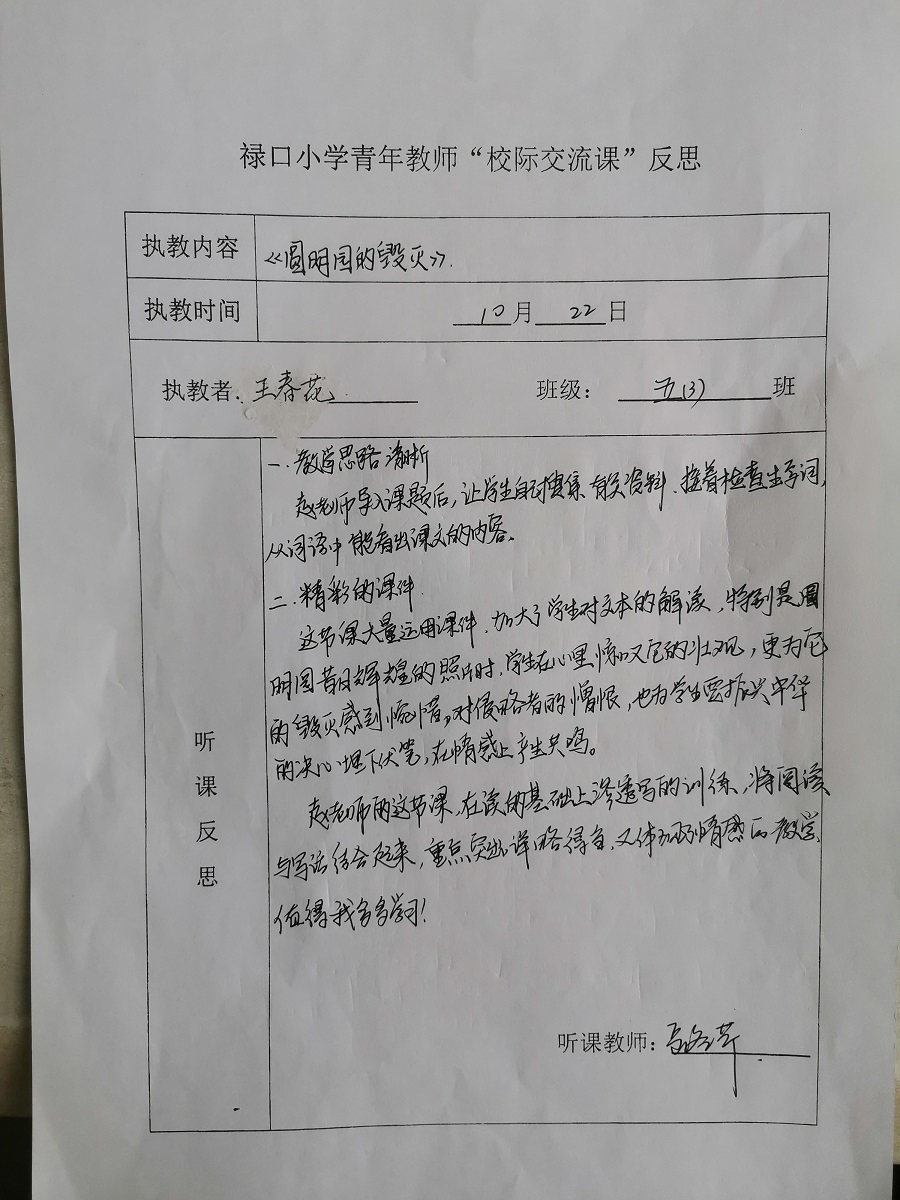 禄口小学青年教师“校际交流课”反思
执教内容
《圆明园的毁灭》.
执教时间
10月22日
执教者.王春花
班级:五(3)班
听课反思
一.教学思路清晰
赵老师导入课题后,让学生自己搜集有关资料、接着检查生字词,
从词语中能看出课文的内容。
二.精彩的课件.
这节课大量运用课件.加大了学生对文本的解读,特别是圆
明园昔日辉煌的照片时,学生在心里惊叹它的壮观,更为它
的毁灭感到惋惜。对侵略者的憎恨,也为学生要振兴中华
的决心埋下伏笔,在情感上产生共鸣。
赵老师的这节课,在读的基础上渗透写的训练,将阅读
与写话结合起来,重点突出详略得当,又体现到情感的教学,
值得我多多学习!
听课教师: